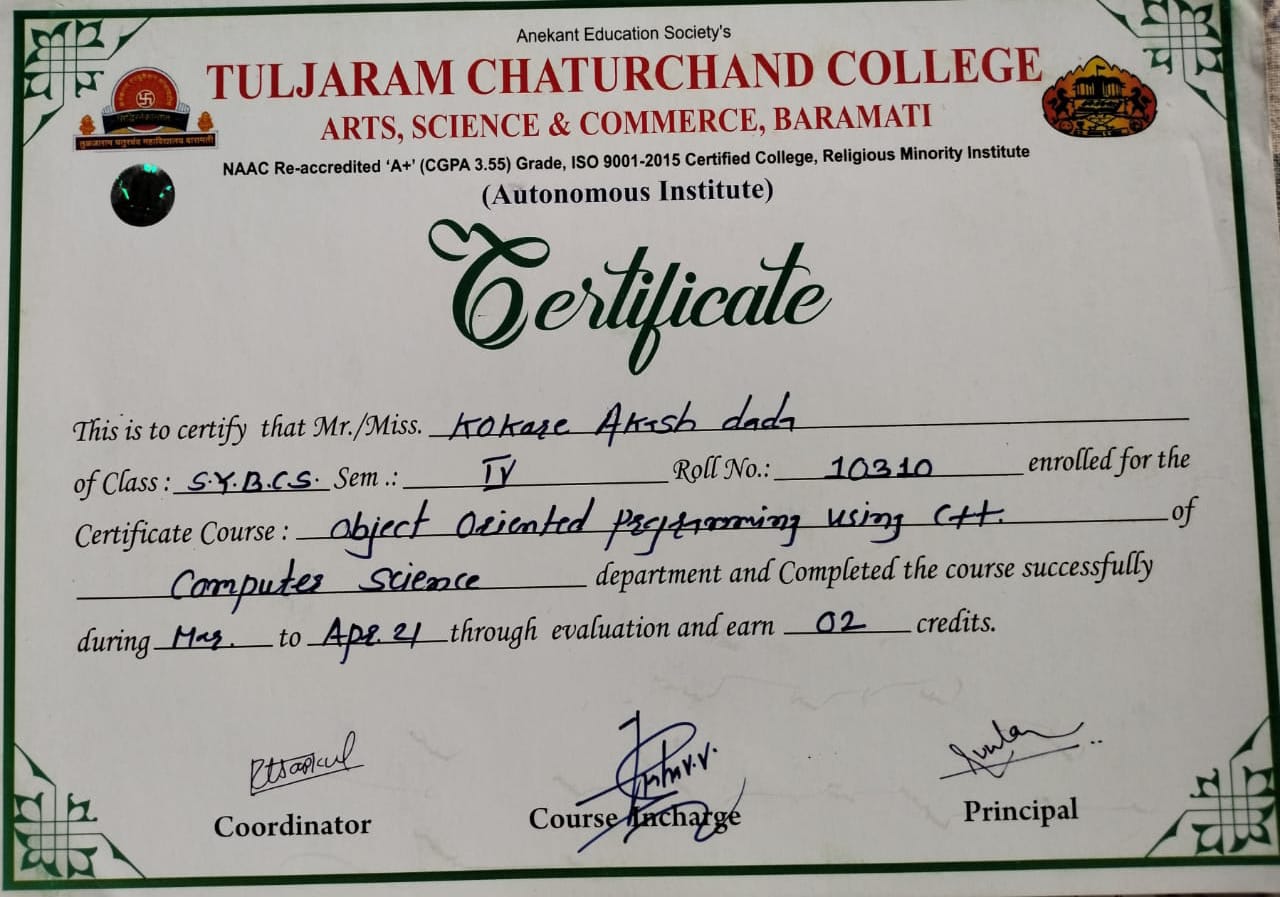 Anekant Education Society's
TULJARAM CHATURCHAND COLLEGE
ARTS, SCIENCE & COMMERCE, BARAMATI
NAAC Re-accredited ‘A+’ (CGPA 3.55) Grade, ISO 9001-2015 Certified College, Religious Minority Institute
(Autonomous Institute)
तुळजाराम चतुरचंद महाविद्यालय बारामती
Certificate
This is to certify that Mr./Miss. Kokare Akash dada
of Class : S.Y.B.C.S. Sem .: IV Roll No.: 10310 enrolled for the
Certificate Course : Object Oriented Programming using C++. of
Computer Science department and Completed the course successfully
during Mar. to Apr. 21 through evaluation and earn 02 credits.
Coordinator Course Incharge Principal